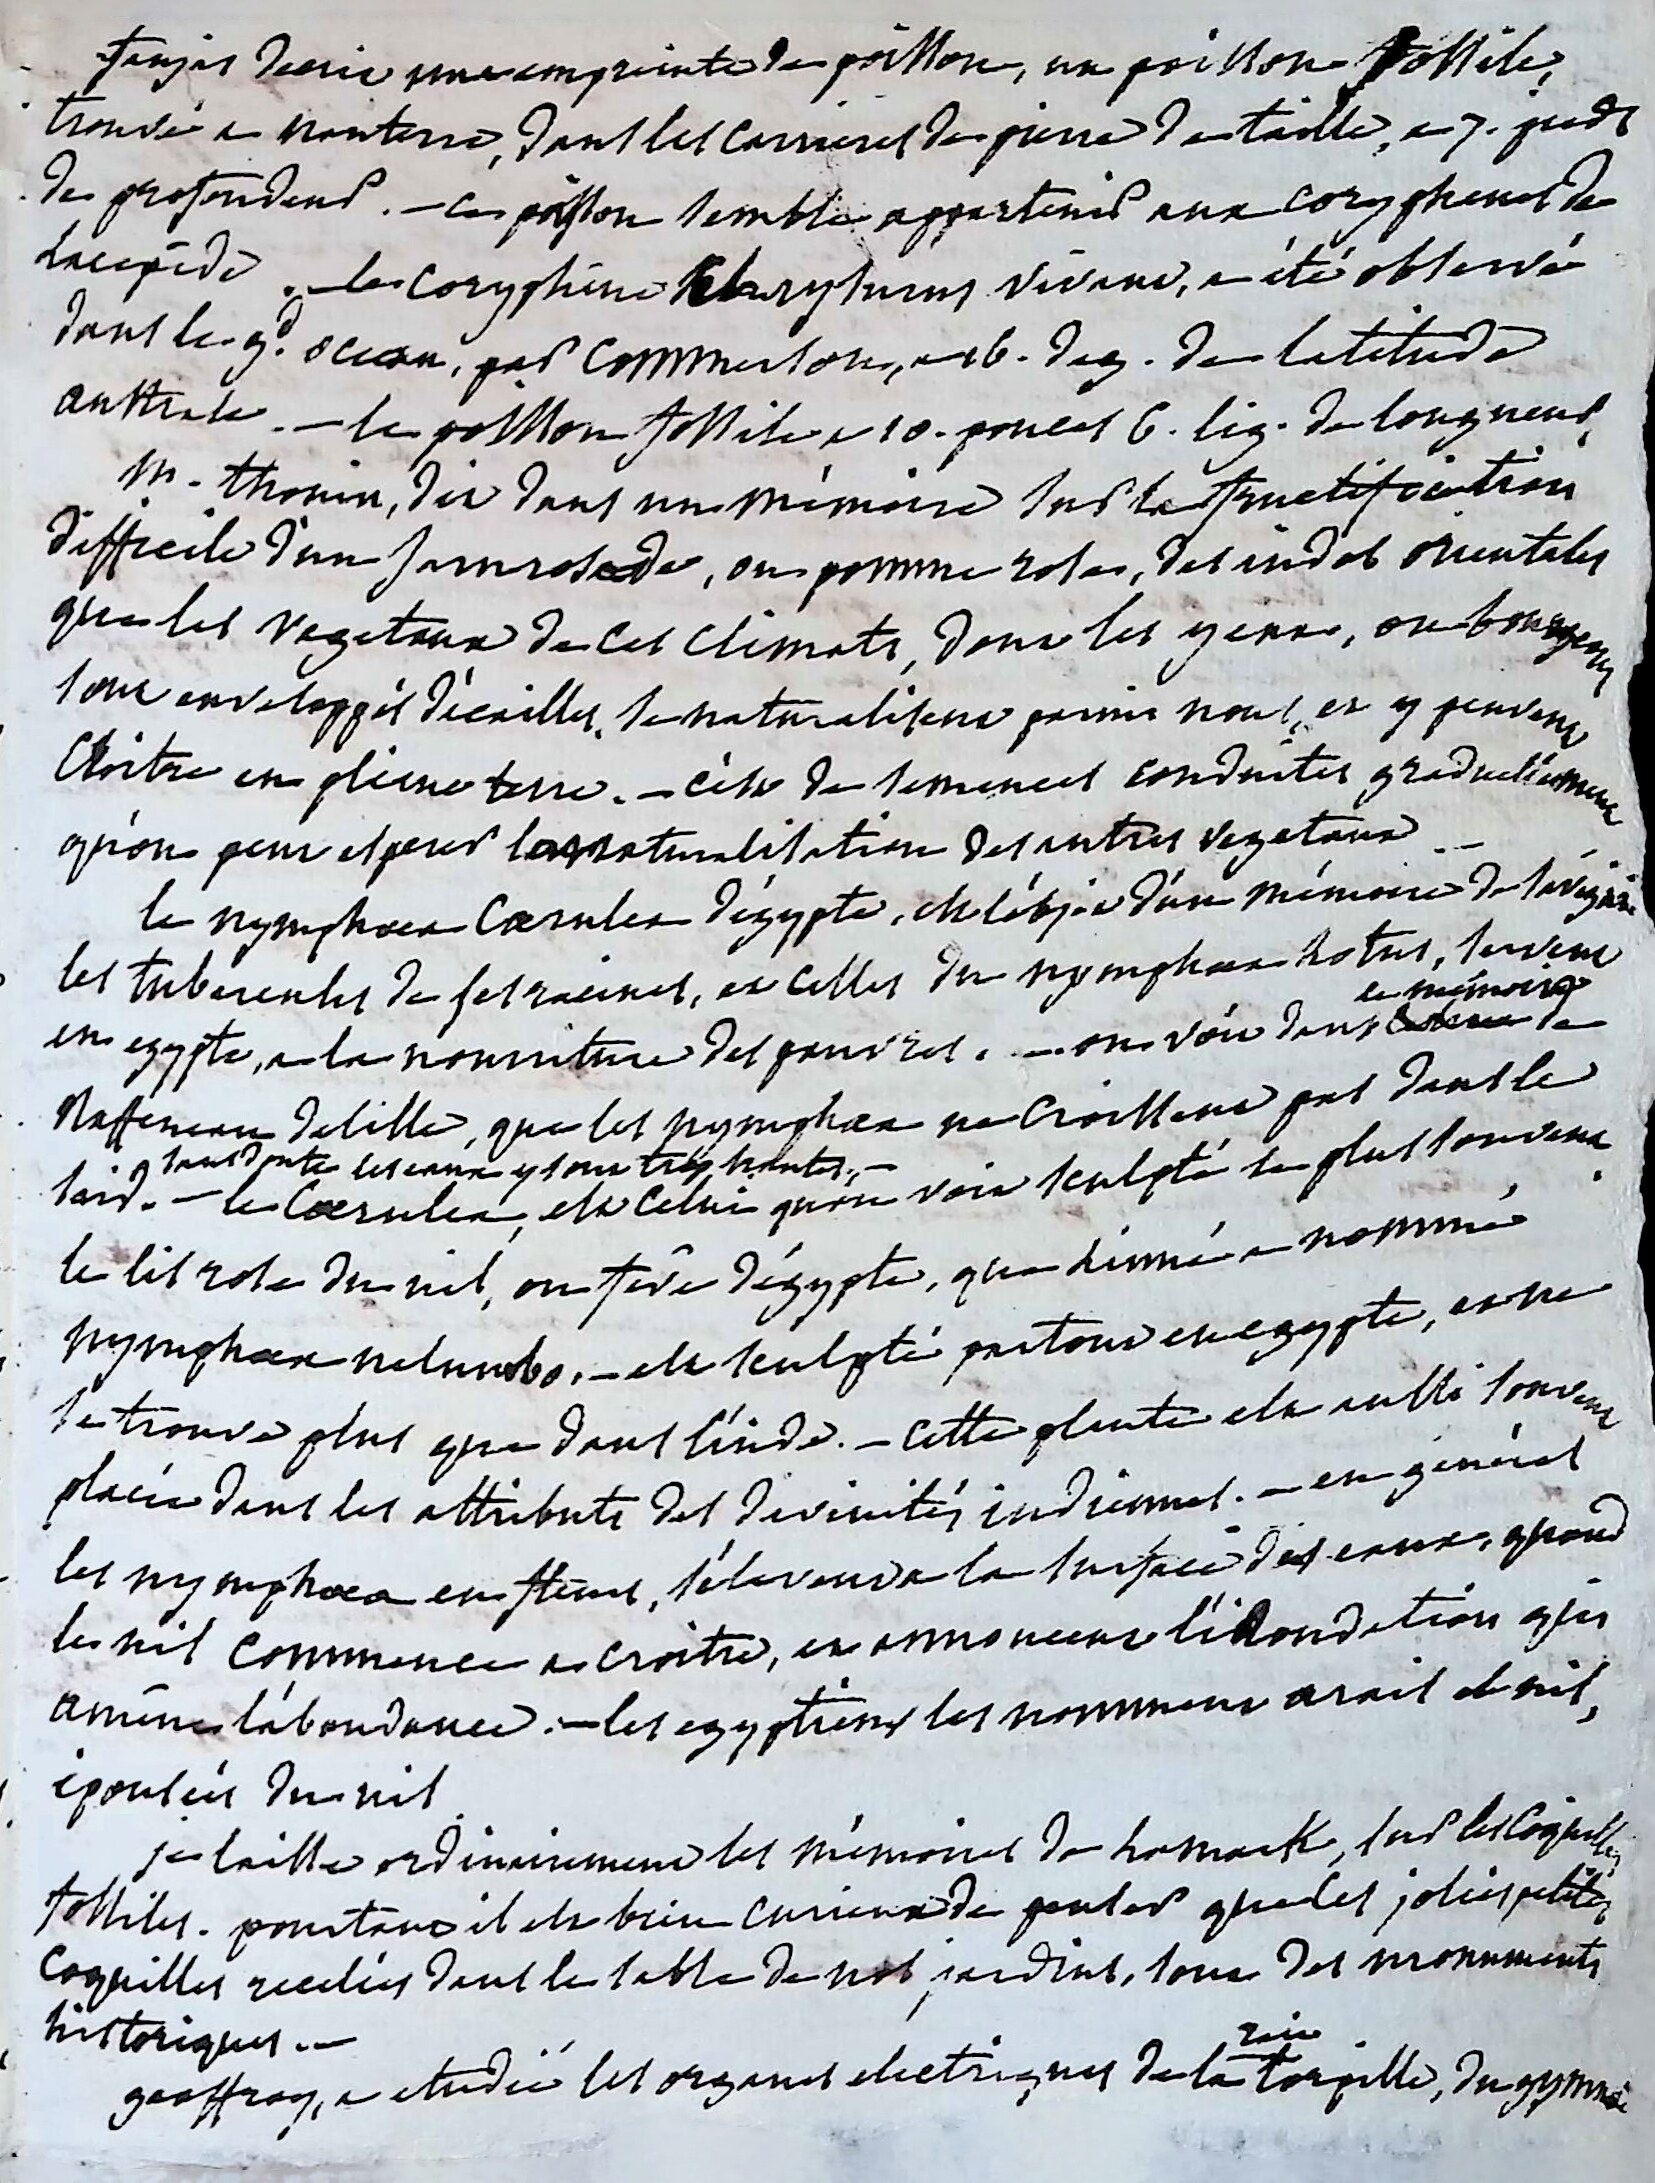 faujas decrit une empreinte de poisson, un poisson fossile,
trouvé a nanterre, dans les carrieres de pierre de taille, a 7. pieds
de profondeur. — ce poisson semble appartenir aux coryphenes de
Lacepède. — le coryphène chrysurus vivant, a été observé
dans le gd. ocean, par Commerson, a 16. deg. de latitude
australe. — le poisson fossile a 10. pouces 6. lig. de longueur,
M. thouin, dit dans un mémoire sur la fructification
difficile d'un jamrosade, ou pomme rose, des indes orientales
que les vegetaux de ces climats, dont les yeux, ou bourgeons
sont enveloppés d'écailles, se naturalisent parmi nous, et y peuvent
croître en pleine terre. — c'est de semences conduites graduellement
qu'on peut esperer la naturalisation des autres vegetaux —
le nymphaea Coerulea d'égypte, est l'objet d'un mémoire de savigni
les tubercules de ses racines, et celles du nymphaea Lotus, servent
en egypte, a la nourriture des pauvres. — on voit dans le mémoire de
Raffeneau delille, que les nymphaea ne croissent pas dans le
sans doute les eaux y sont trop hautes, —
said. — le Coerulea, est celui qu'on voit sculpté le plus souvent
le lis rose du nil, ou fève d'égypte, que Linné a nommé
nymphaea nelumbo. — est sculpté partout en egypte, et ne
se trouve plus que dans l'inde. — cette plante est aussi souvent
placée dans les attributs des divinités indiennes. — en général
les nymphaea en fleurs, s'élevent a la surface des eaux, quand
le nil commence a croître, et annoncent l'inondation qui
amène l'abondance. — les egyptiens les nomment arais el nil,
épousées du nil
je laisse ordinairement les mémoires de Lamarck, sur les coquilles
fossiles. pourtant il est bien curieux de penser que les jolies petites
coquilles recelées dans le sable de nos jardins, sont des monuments
historiques. —
raie
geoffroy, a etudié les organes electriques de la torpille, du gymno